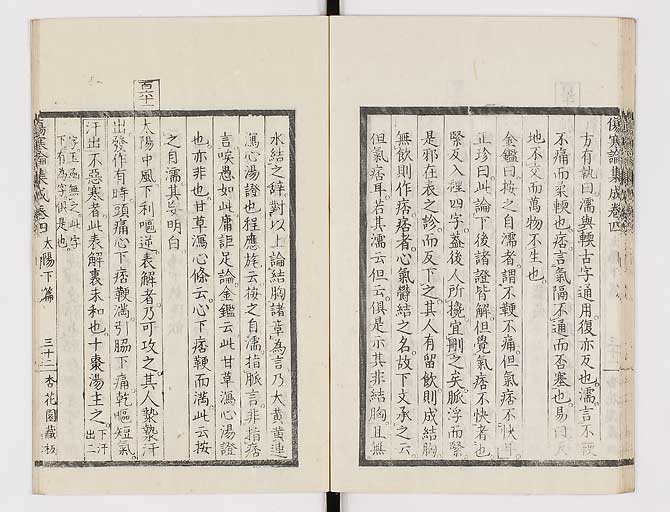 傷寒論集成卷四
方有執曰濡與輭古字通用復亦反也濡言不鞕
不痛而柔輭也痞言氣隔不通而否塞也易曰天
地不交而萬物不生也
金鑑曰按之自濡者謂不鞕不痛但氣痞不快耳
正珍曰此論下後諸證皆解但覺氣痞不快者也
緊反入裡四字蓋後人所攙宜刪之矣脈浮而緊
是邪在表之診而反下之其人有留飲則成結胸
無飲則作痞痞者心氣鬱結之名故下文承之云
但氣痞耳若其濡云但云俱是示其非結胸且無
水結之辭對以上論結胸諸章為言乃大黃黃連
瀉心湯證也程應旄云按之自濡指脈言非指痞
言嗅愚如此庸詎足論金鑑云此甘草瀉心湯證
也亦非也甘草瀉心條云心下痞鞕而滿此云按
之自濡其妄明白
百六十一
太陽中風下利嘔逆表解者乃可攻之其人漐漐汗
出發作有時頭痛心下痞鞕滿引脇下痛乾嘔短氣
汗出不惡寒者此表解裏未和也十棗湯主之下汗
出二
字玉函無之此字
下有為字俱是也
傷寒論集成卷四 太陽下篇 三十二 杏花園藏板